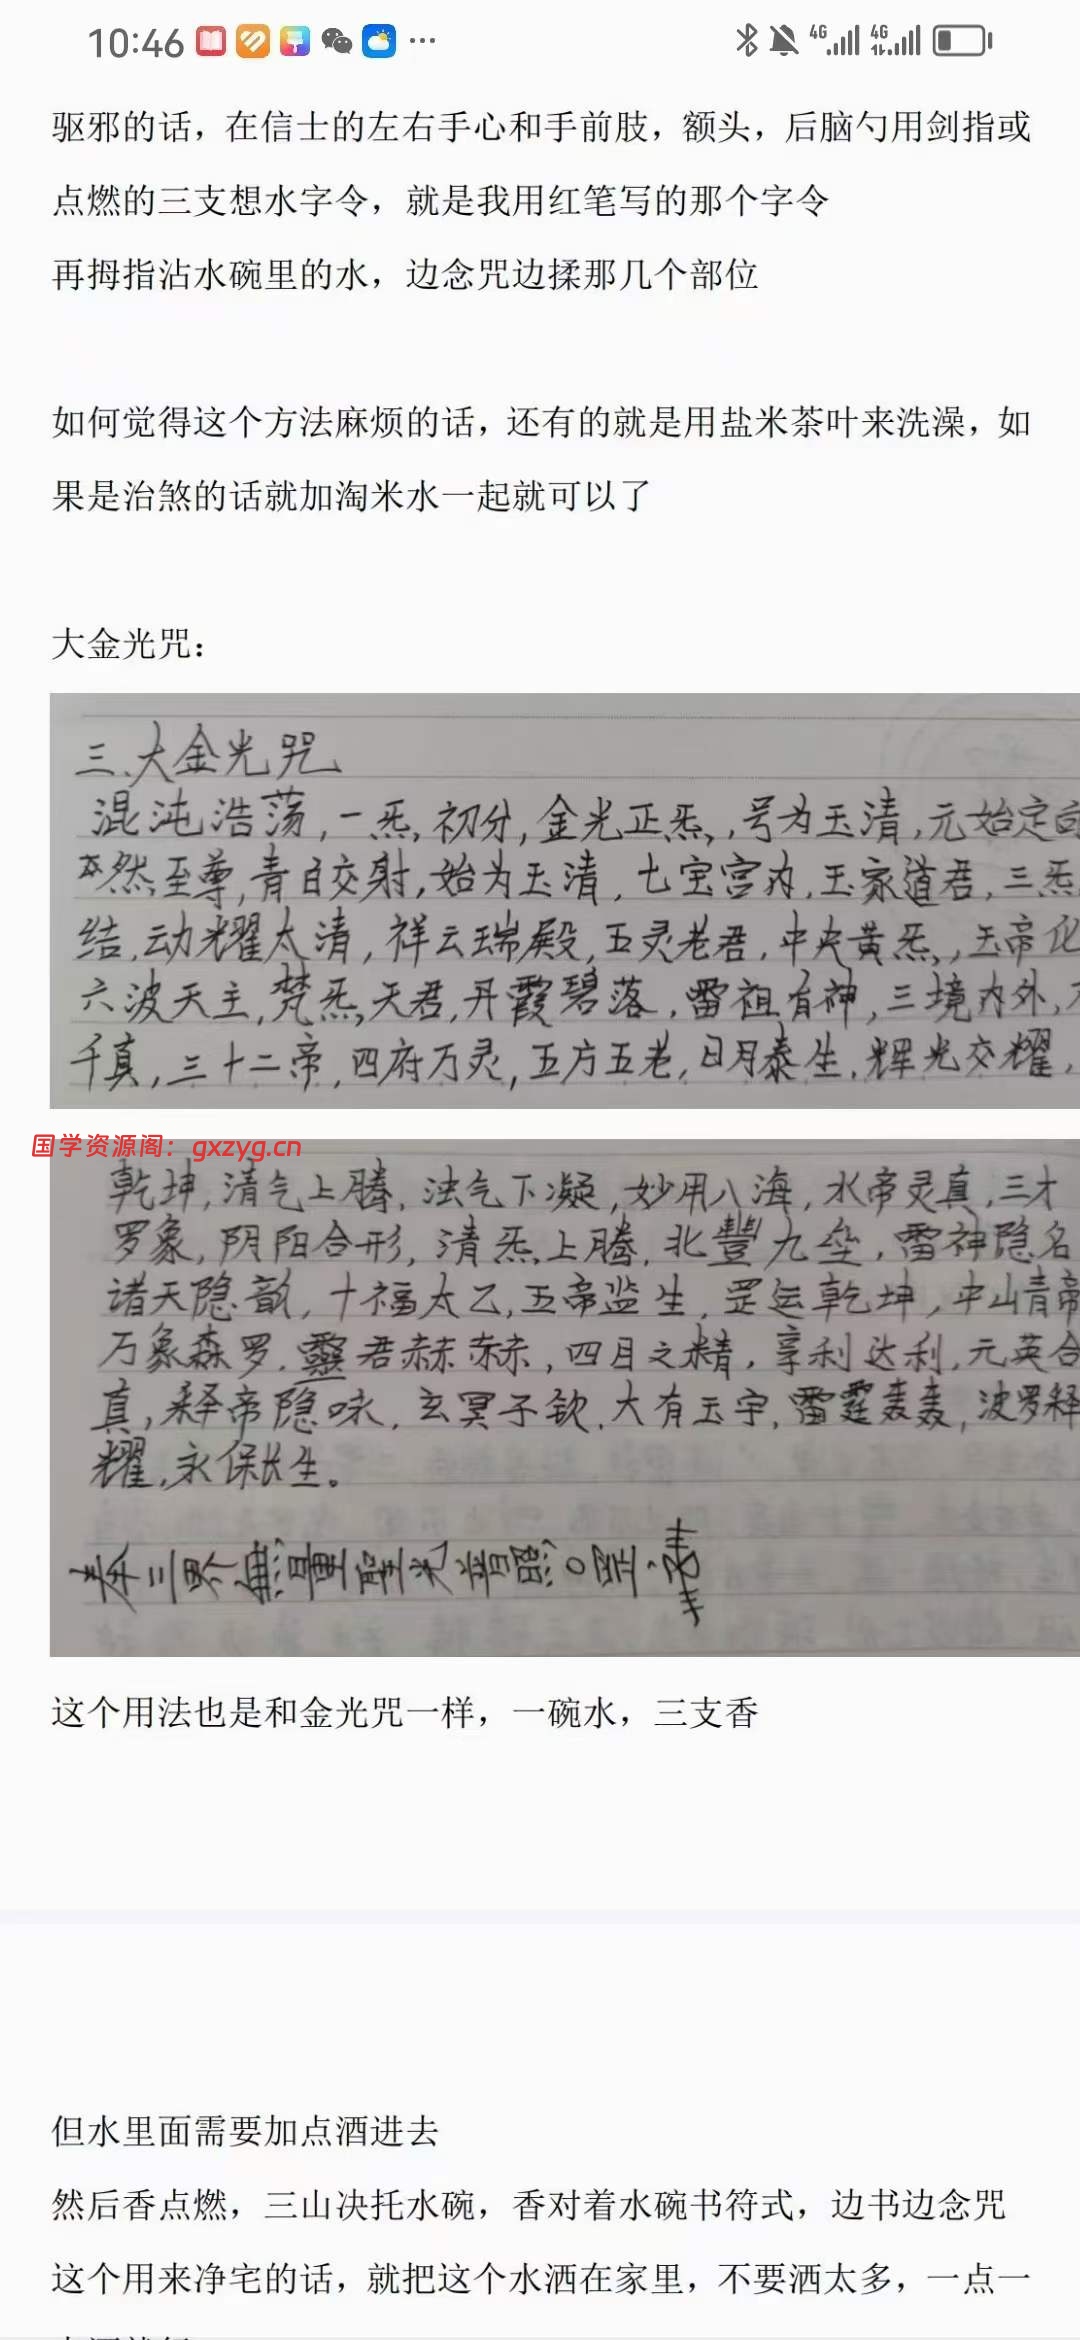 10:46
4G 4G
驱邪的话，在信士的左右手心和手前肢，额头，后脑勺用剑指或
点燃的三支想水字令，就是我用红笔写的那个字令
再拇指沾水碗里的水，边念咒边揉那几个部位
如何觉得这个方法麻烦的话，还有的就是用盐米茶叶来洗澡，如
果是治煞的话就加淘米水一起就可以了
大金光咒：
三、大金光咒
混沌浩荡，一炁初分，金光正炁，号为玉清，元始定
然至尊，青白交射，始为玉清，七宝宫内，玉家道君，三炁
结，动耀太清，祥云瑞殿，五灵老君，中央黄炁，玉帝化
六波天主，梵炁天君，丹霞碧落，雷祖有神，三境内外，
千真，三十二帝，四府万灵，五方五老，日月泰生，辉光交耀，
国学资源阁：gxzyg.cn
乾坤，清气上腾，浊气下凝，妙用八海，水帝灵真，三才
罗象，阴阳合形，清炁上腾，北豐九垒，雷神隐名
诸天隐韵，十福太乙，五帝监生，罡运乾坤，中山青帝
万象森罗，靈君赫赫，四目之精，享利达利，元英合
真，释帝隐咏，玄冥子钦，大有玉宇，雷霆轰轰，波罗释
耀，永保长生。
奉三界無量聖光普照
这个用法也是和金光咒一样，一碗水，三支香
但水里面需要加点酒进去
然后香点燃，三山决托水碗，香对着水碗书符式，边书边念咒
这个用来净宅的话，就把这个水洒在家里，不要洒太多，一点一